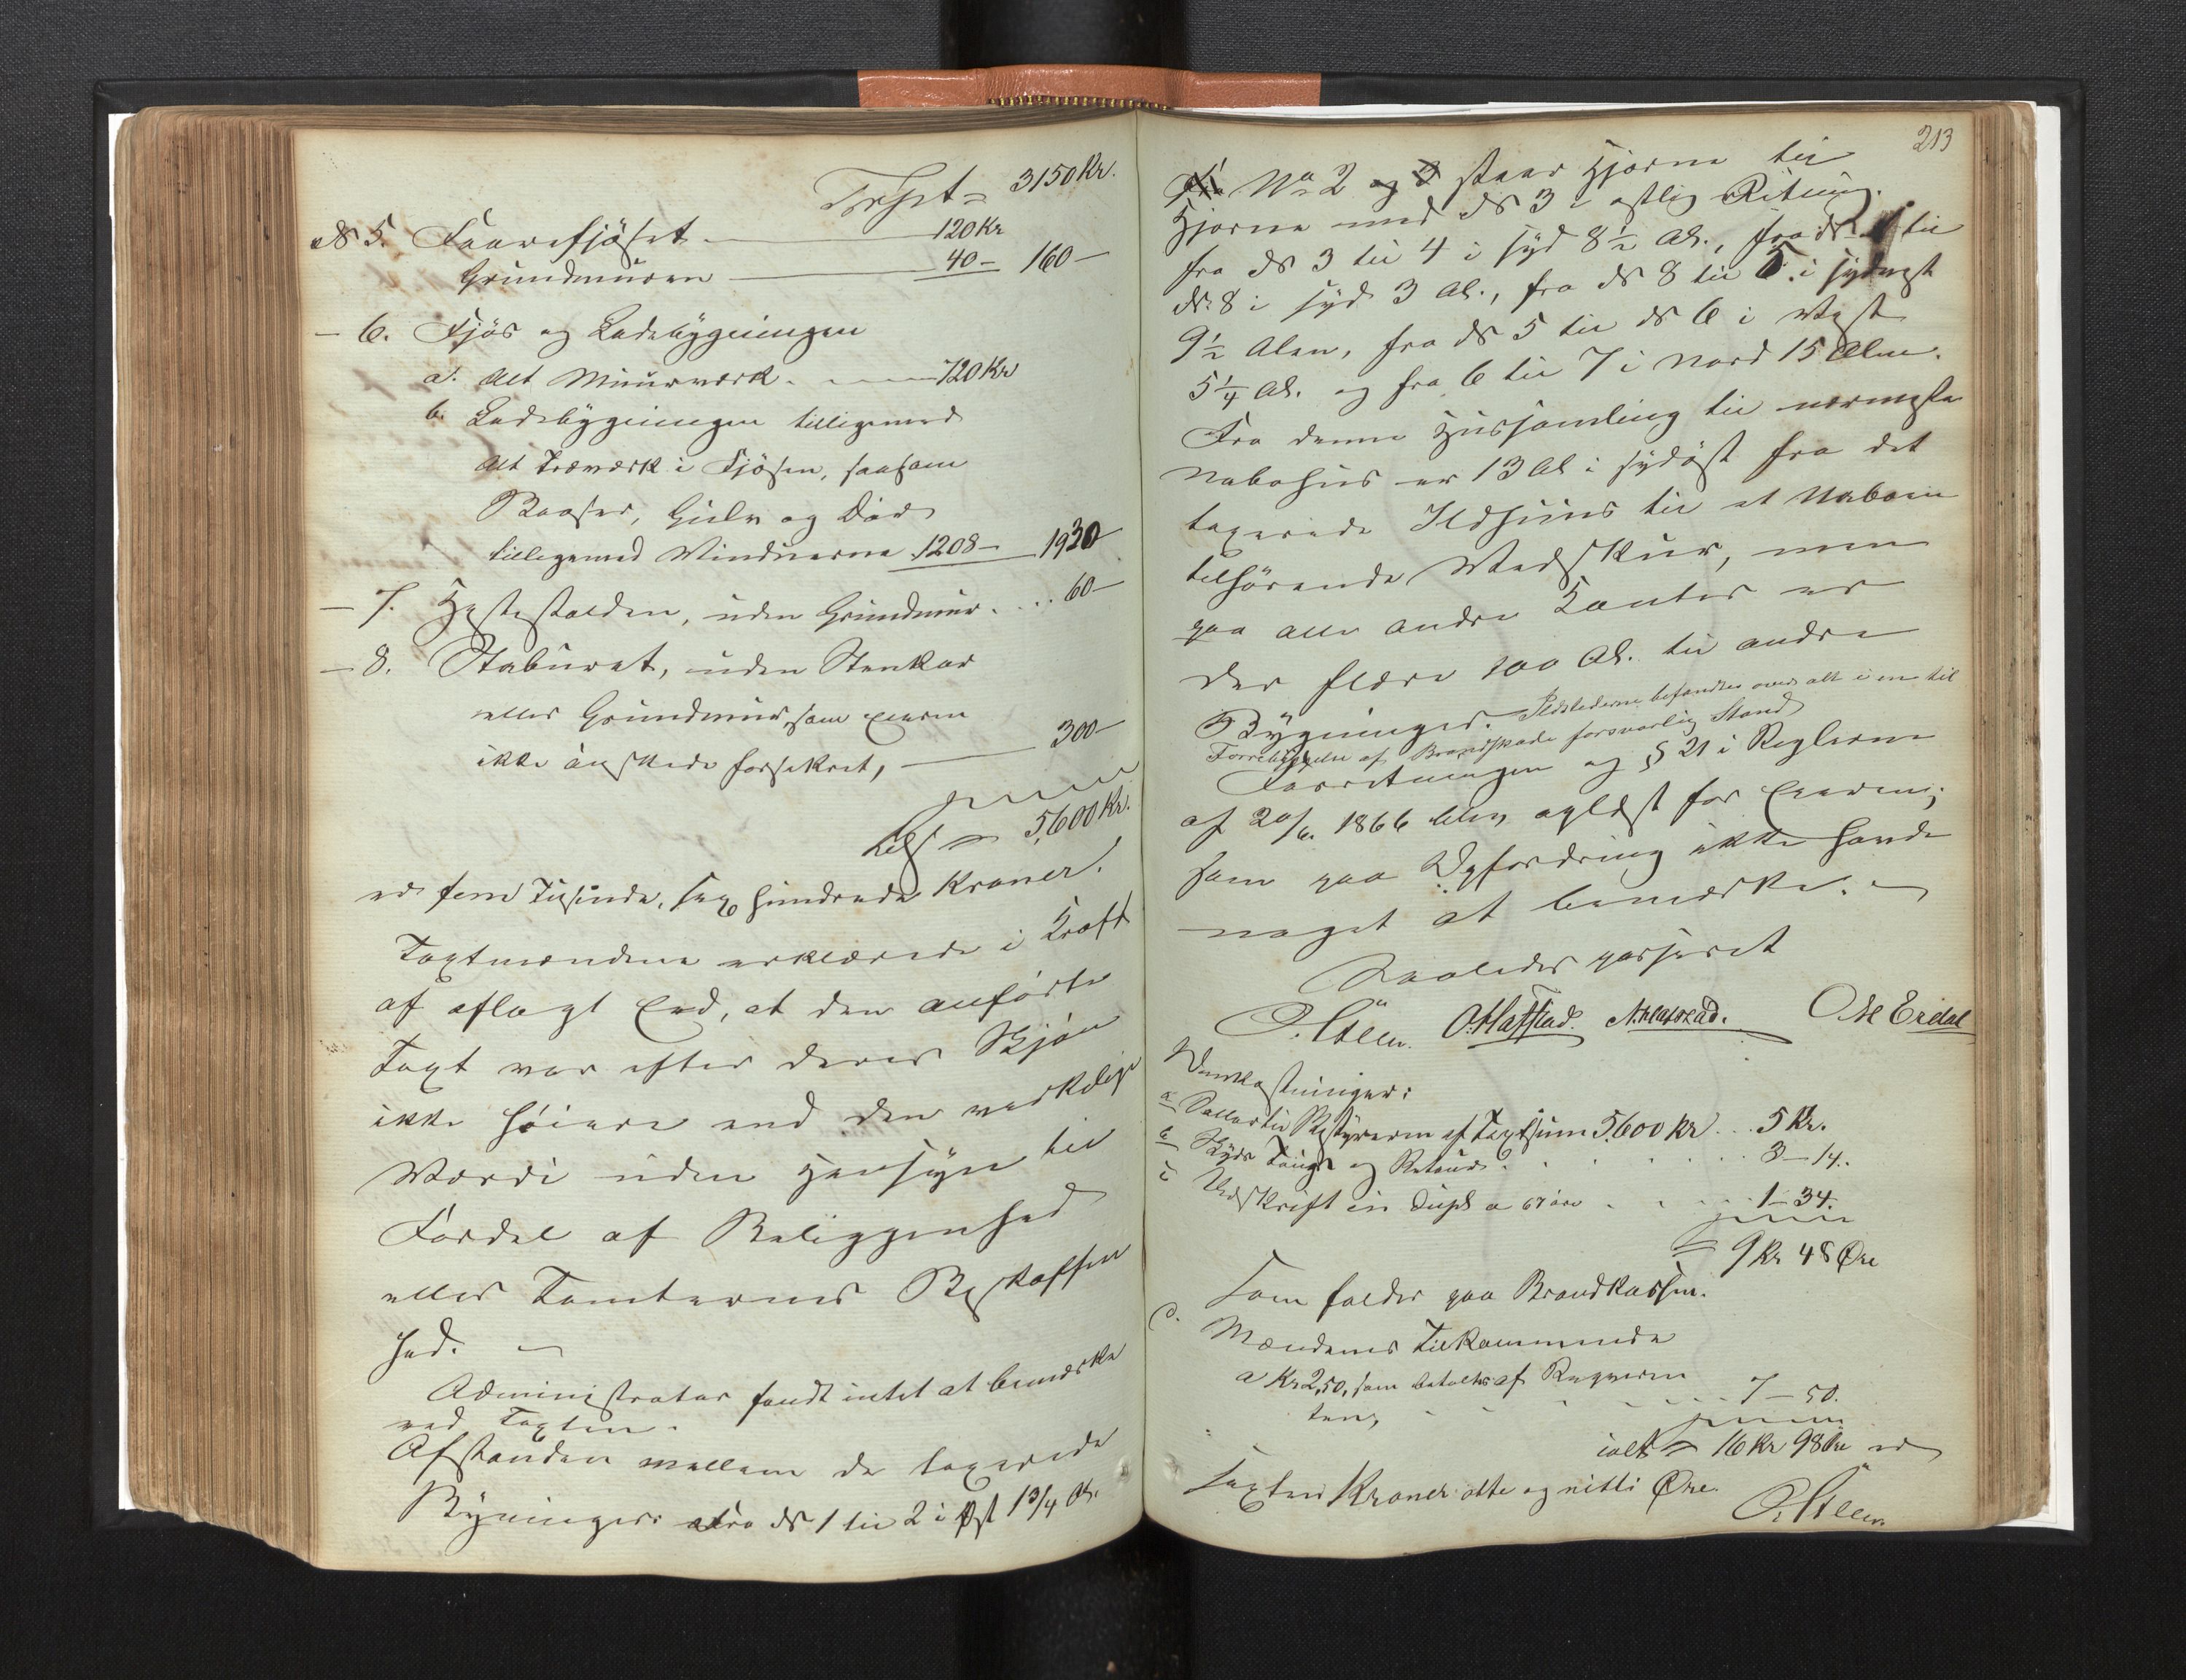 Trspt= 3150 Kr.
№ 5. Faarefjöset 120 Kr
Grundmuren 40 - 160 -
- 6. Fjös og Ladebygningen
a. Alt Muurværk. 720 Kr
b. Ladebygningen tilligemed
Alt Træværk i Fjösen, saasom
Baaser, Gulv og Dör
tilligemed Vinduerne 1208 - 1930
- 7. Hestestalden, uden Grundmur . . . 60 -
- 8. Staburet, uden Stenkar
eller Grundmur, som Eieren
ikke önskede forsikret, 300 -
Tils = 5,600 Kr.
er fem Tusinde, sex hundrede Kroner.
Taxtmændene erklærede i Kraft
af aflagt Eed, at den anförte
Taxt var efter deres Skjön
ikke höiere end den virkelige
Værdi uden Hensyn til
Fordel af Beliggenhed
eller Tomternes Beskaffen
hed.
Administrator fandt intet at bemærke
ved Taxten.
Afstanden mellem de taxerede
Bygninger: Fra № 1 til 2 i Öst 1 3/4 Al.
213
Fra No 2 og 3 staar Hjörne til
Hjörne med № 3 i östlig Retning.
fra № 3 til 4 i syd 8 1/2 Al., fra № til
№ 8 i syd 3 Al., fra № 8 til 5. i sydvest
9 1/2 Alen, fra № 5 til № 6 i Vest
5 1/4 Al. og fra 6 til 7 i Nord 15 Alen.
Fra denne Hussamling til nærmeste
Nabohus er 13 Al i sydöst fra det
taxerede Ildhuus til et Naboen
tilhörende Vedskur, men
paa alle andre Kanter er
der flere 100 Al. til andre
Bygninger. Ildstederne befandtes overalt i en til
Forrebyggelse af Brandskade forsvarlig Stand
Forretningen og § 21 i Reglerne
af 20/6. 1866 blev oplæst for Eieren,
som paa Opfordring ikke havde
noget at bemærke.
Saaledes passeret
O. Hafstad. N. Hafstad. Ole Eidal
Omkostninger:
a Sallar til Bestyreren af Taxtsum 5,600 Kr . . 5 Kr.
b Skyds Tour og Retour . . . 3 - 14.
c Udskrift in Dupl a 67 öre . . . 1 - 34.
= 9 Kr 48 Öre
Som falder paa Brandkassen.
d. Mændenes Tilkommende
a Kr 2,50, som betales af Reqviren
ten, 7 - 50.
ialt = 16 Kr 98 Öre er
Sexten Kroner otte og nitti Öre.